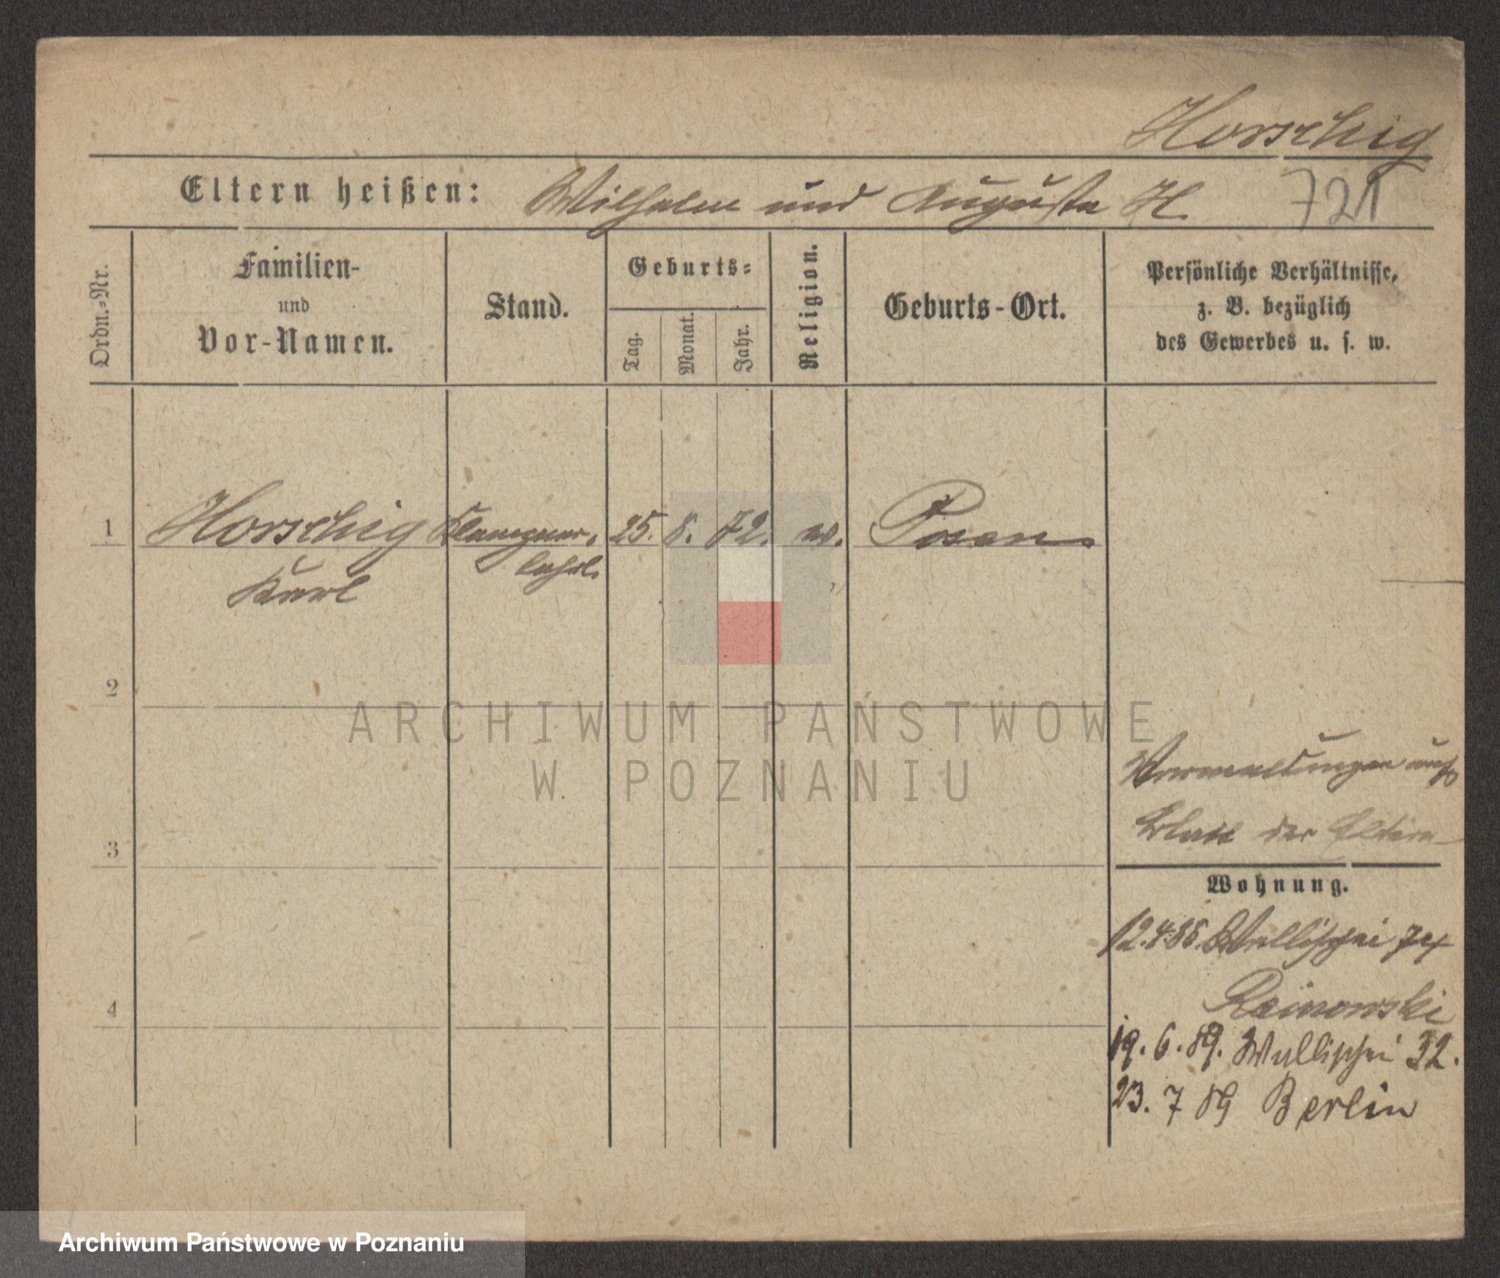 Horschig
Eltern heißen: Wilhelm und Auguste H. 721
Ordn.-Nr.
Familien-
und
Vor-Namen.
Stand.
Geburts-
Tag.
Monat.
Jahr.
Religion.
Geburts-Ort.
Persönliche Verhältnisse,
z. B. bezüglich
des Gewerbes u. s. w.
1 Horschig Klempner- 25. 8. 72. ev. Posen
lehrl.
Karl
2
ARCHIWUM PAŃSTWOWE
W POZNANIU
der Eltern
3
Wohnung.
Wallischei 74
4
19. 6. 89. Wallischei 32.
23. 7 89 Berlin
Archiwum Państwowe w Poznaniu